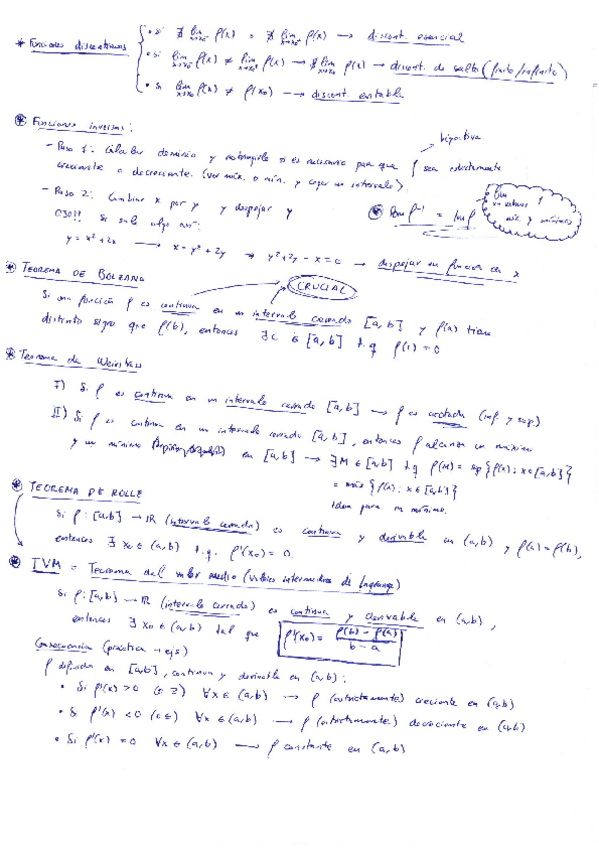 * Funciones discontinuas
• si ∄ lim x→x₀⁻ f(x) o ∄ lim x→x₀⁺ f(x) → discont. esencial
• si lim x→x₀⁻ f(x) ≠ lim x→x₀⁺ f(x) → ∄ lim x→x₀ f(x) → discont. de salto (finito/infinito)
• si lim x→x₀ f(x) ≠ f(x₀) → discont. evitable
* Funciones inversas:
biyectiva
- Paso 1: Calcular dominio y restringirlo si es necesario para que f sea estrictamente
creciente o decreciente. (ver máx. o mín. y coger un intervalo).
- Paso 2: Cambiar x por y y despejar y
* Dom f⁻¹ = Im f
máx. y mínimos
OJO!! Si sale algo así:
y = x² + 2x → x = y² + 2y → y² + 2y - x = 0 → despejar en función de x
* TEOREMA DE BOLZANO
CRUCIAL
Si una función f es continua en un intervalo cerrado [a,b] y f(a) tiene
distinto signo que f(b), entonces ∃ c ∈ [a,b] t.q f(c) = 0
* Teorema de Weierstrass
I) Si f es continua en un intervalo cerrado [a,b] → f es acotada (inf y sup)
II) Si f es continua en un intervalo cerrado [a,b], entonces f alcanza un máximo
y un mínimo en [a,b] → ∃ M ∈ [a,b] t.q f(M) = sup {f(x): x ∈ [a,b]}
= máx {f(x): x ∈ [a,b]}
Idem para m mínimo.
* TEOREMA DE ROLLE
Si f: [a,b] → ℝ (intervalo cerrado) es continua y derivable en (a,b) y f(a) = f(b),
entonces ∃ x₀ ∈ (a,b) t.q. f'(x₀) = 0.
* TVM = Teorema del valor medio (valores intermedios de Lagrange)
Si f: [a,b] → ℝ (intervalo cerrado) es continua y derivable en (a,b),
entonces ∃ x₀ ∈ (a,b) tal que f'(x₀) = f(b) - f(a) / b - a
Consecuencia (práctica → ejs)
f definida en [a,b], continua y derivable en (a,b):
• Si f'(x) > 0 (o ≥) ∀x ∈ (a,b) → f (estrictamente) creciente en (a,b)
• Si f'(x) < 0 (o ≤) ∀x ∈ (a,b) → f (estrictamente) decreciente en (a,b)
• Si f'(x) = 0 ∀x ∈ (a,b) → f constante en (a,b)